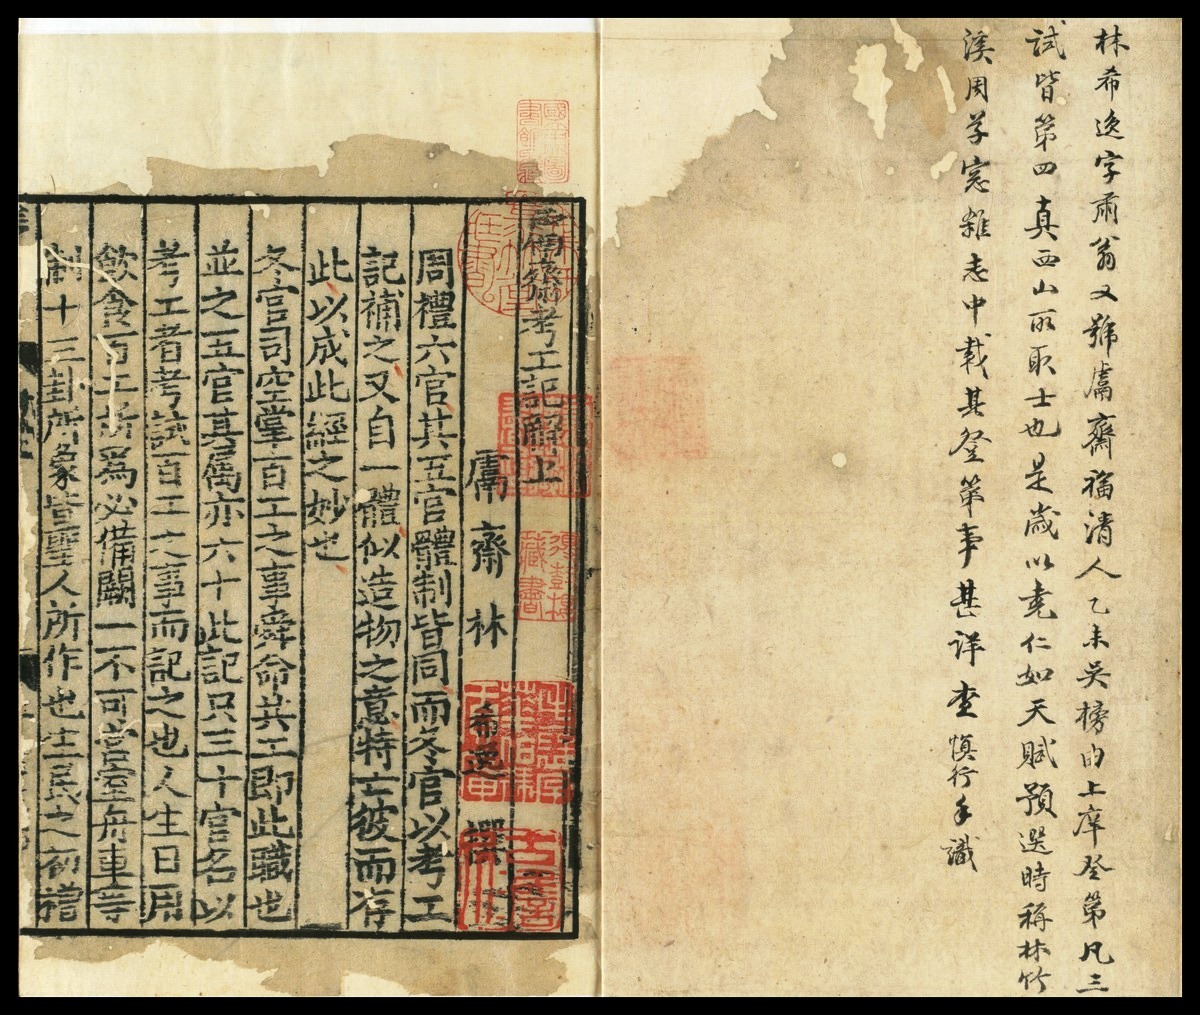 林希逸字肅翁又號鬳齋福清人乙未吳榜由上庠登第凡三
試皆第四真西山所取士也是歲以堯仁如天賦預選時稱林竹
溪周草窻雜志中載其登第事甚詳查慎行手識
考工記解上
鬳齋林希逸撰
周禮六官其五官體制皆同而冬官以考工
記補之又自一體似造物之意特亡彼而存
此以成此經之妙也
冬官司空掌百工之事舜命共工即此職也
並之五官其屬亦六十此記只三十官名以
考工者考試百工之事而記之也人生日用
飲食百工所爲必備闕一不可宮室舟車等
制十三卦所象皆聖人所作也生民之初禮